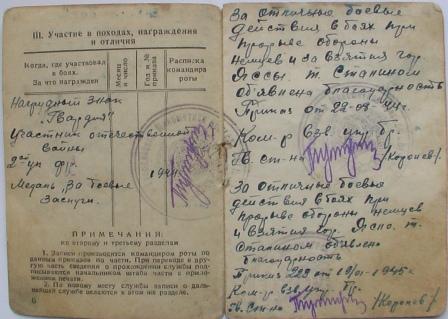 III. Участие в походах, награждения
и отличия
Когда, где участвовал
в боях.
За что награжден
Месяц
и число
Год и №
приказа
Расписка
командира
роты
Нагрудной Знак
"Гвардия"
Участник отечественной
войны
2ой ук. фр.
Медаль "За боевые 194
Заслуги.
ПРИМЕЧАНИЯ
ко второму и третьему разделам
1. Записи производятся командиром роты по
данным приказа по части. При переводе в дру-
гую часть сведения о прохождении службы под-
писываются начальником штаба части с прило-
жением печати.
2. По новому месту службы записи о даль-
нейшей службе делаются в этом же разделе.
6
За отличные боевые
действия в боях при
прорыве обороны
немцев и за взятия гор
Яссы. т. Сталином
объявлена благодарность
Приказ от 22-08-44г.
Ком-р взв. упр. бр.
Гв. ст-на /Коронев/
За отличные боевые
действия в боях при
прорыве обороны немцев
и взятия гор. т.
Сталином объявлено
благодарность
Приказ 223 от 19/01-1945г
Ком-р взв. упр. бр.
Гв. Ст-на /Коронев/